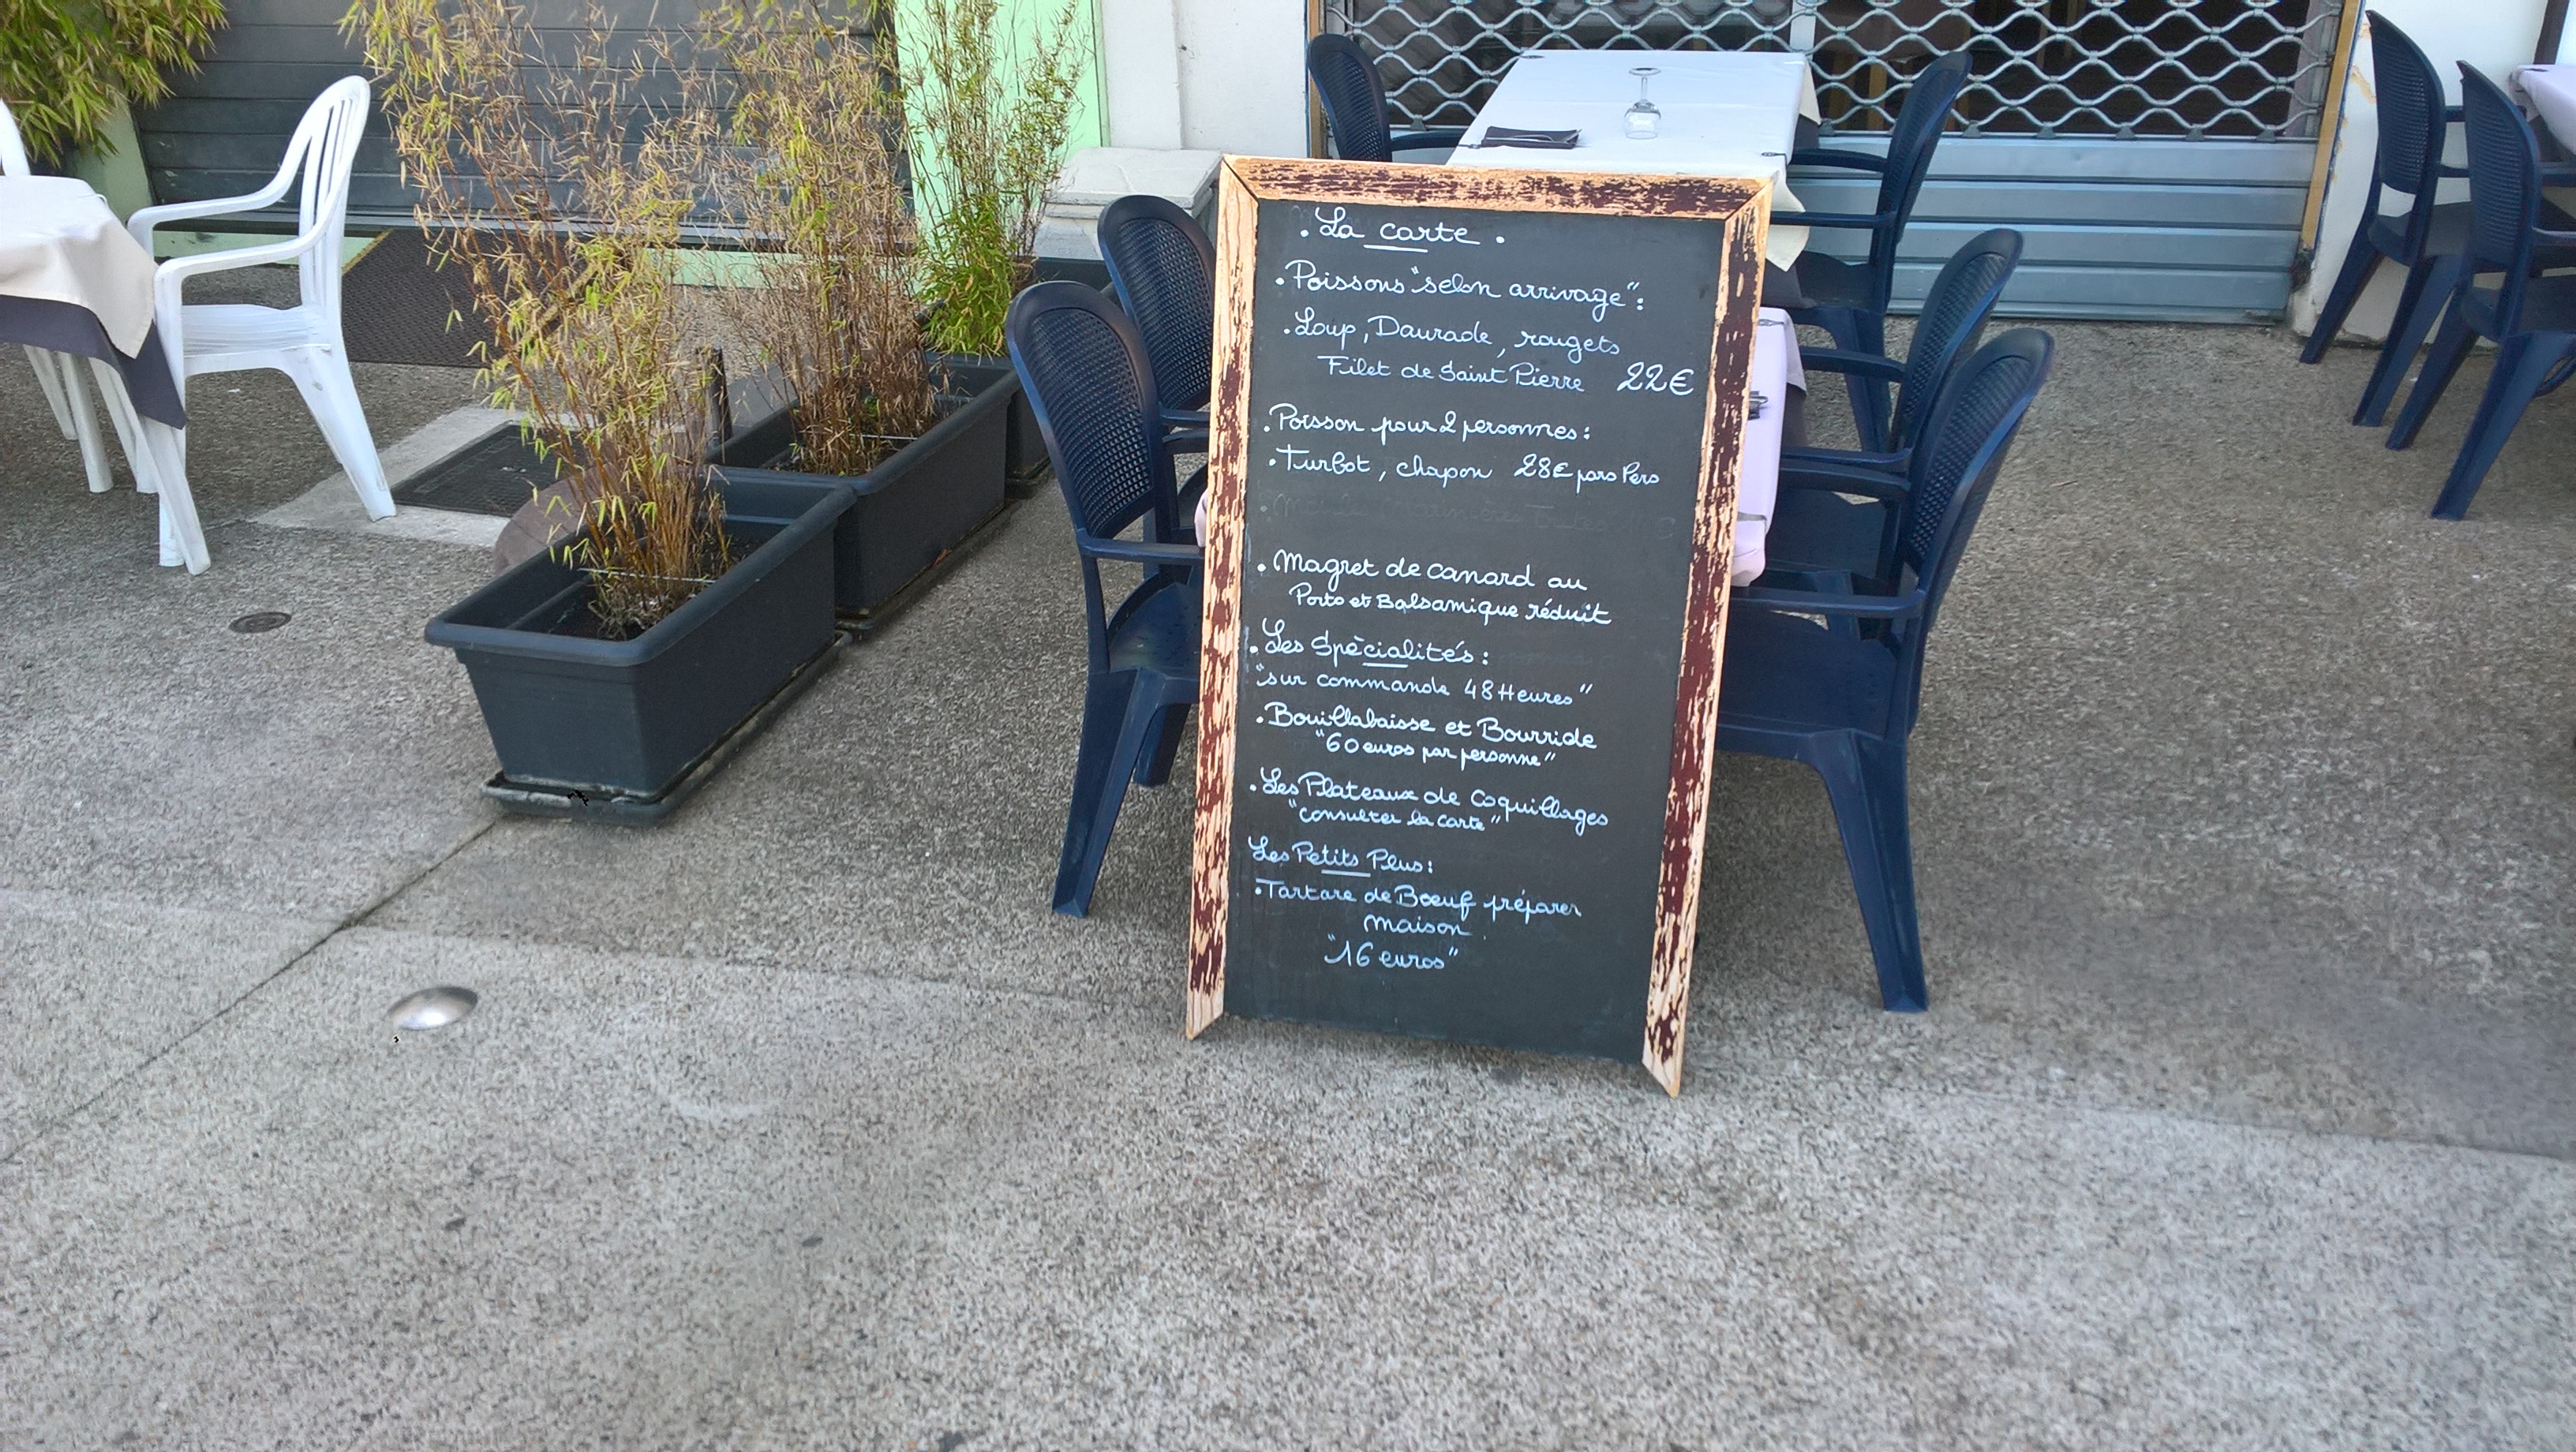 . La carte .
. Poissons "selon arrivage" :
. Loup, Daurade, rougets
Filet de Saint Pierre 22€
. Poisson pour 2 personnes :
. Turbot, chapon 28€ pars Pers
. Magret de canard au
Porto et Balsamique réduit
. Les Spècialités :
"sur commande 48 Heures"
. Bouillabaisse et Bourride
"60 euros par personne"
. Les Plateaux de Coquillages
"consulter la carte"
Les Petits Plus :
. Tartare de Boeuf préparer
maison
"16 euros"